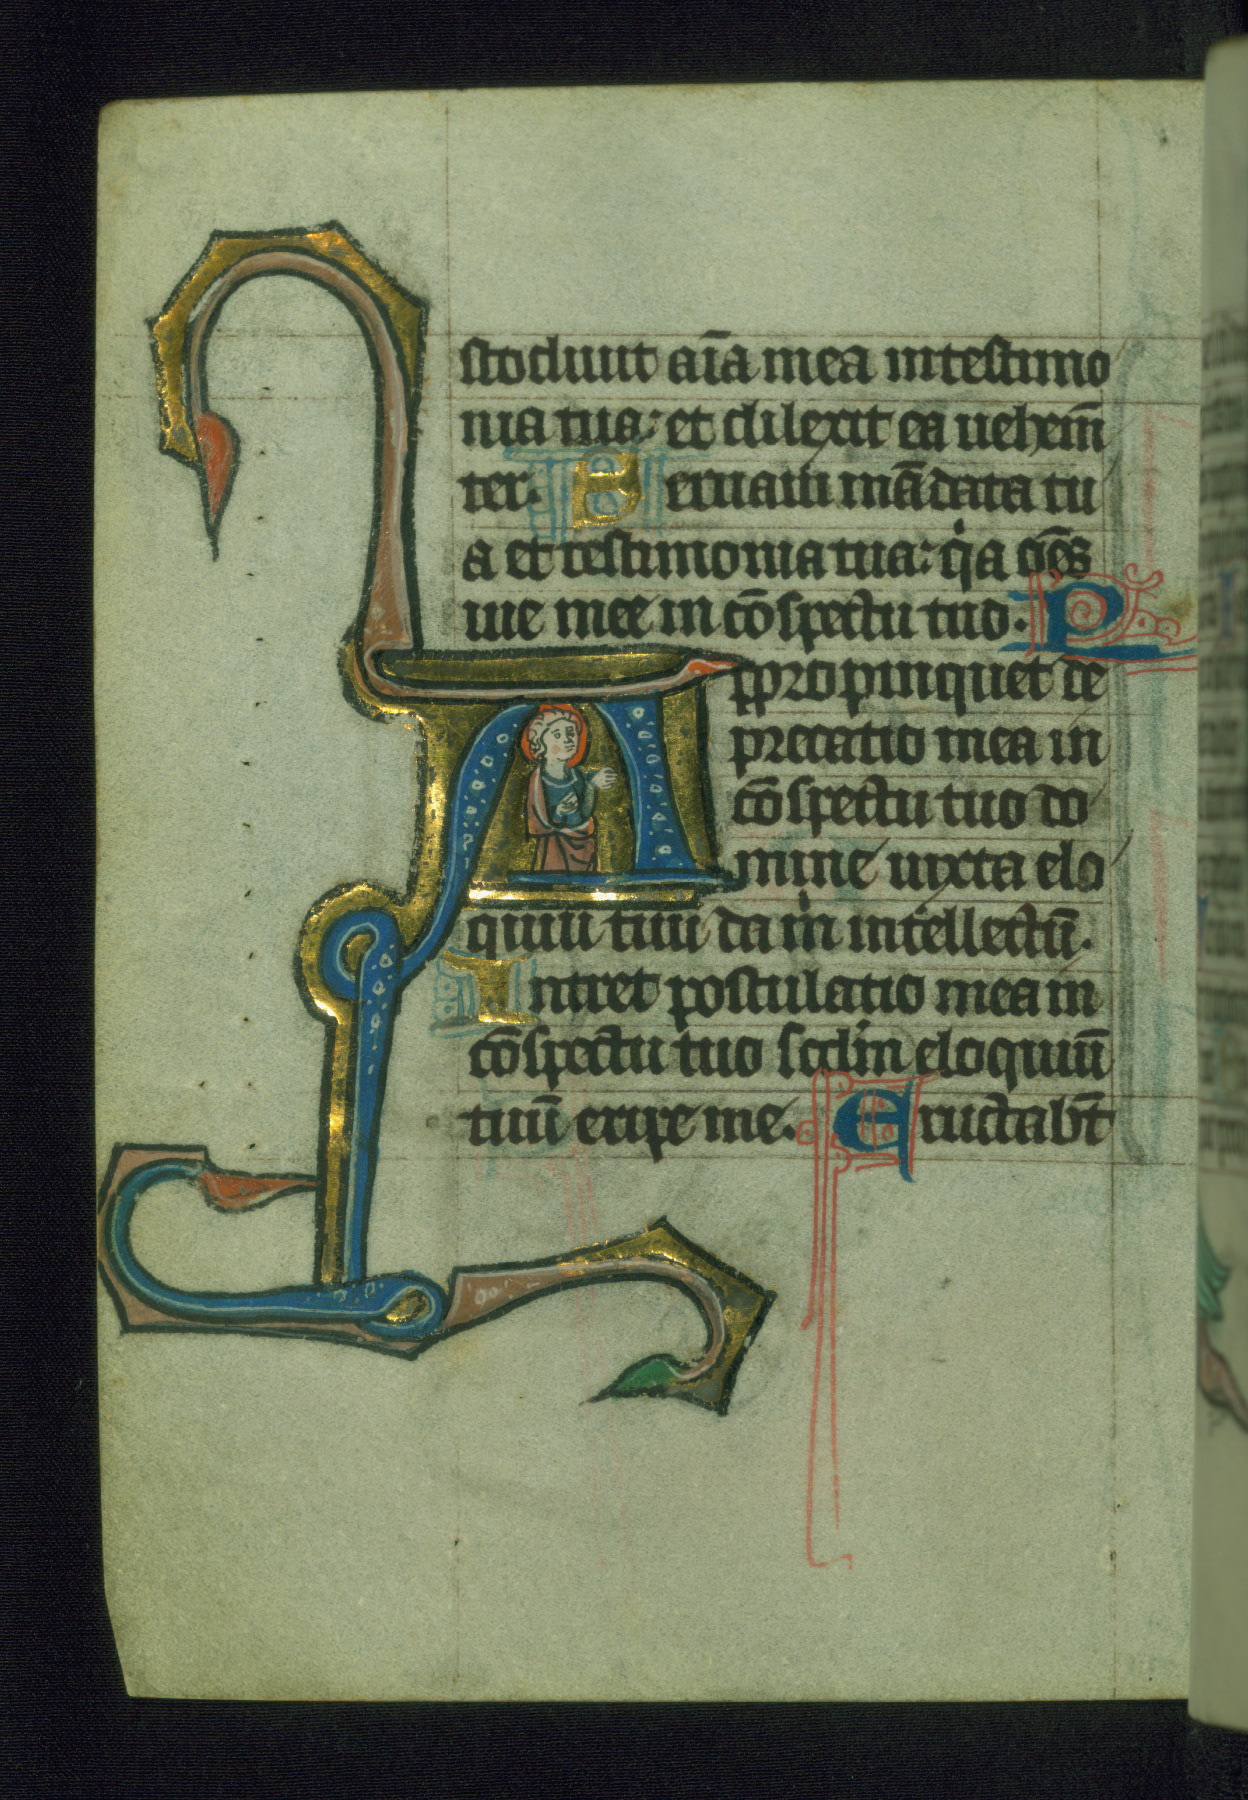 stodiuit aīa mea in testimo
nia tua: et dilexit ea uehem̄
ter. Seruaui mādata tu
a et testimonia tua: qⁱa om̄s
uie mee in cōspectu tuo. P
A ppropinquet de
precatio mea in
cōspectu tuo do
mine iuxta elo
quiu tuu da mⁱ intellectū.
Intret postulatio mea in
cōspectu tuo scdm̄ eloquiū
tuū eripe me. Eructabūt